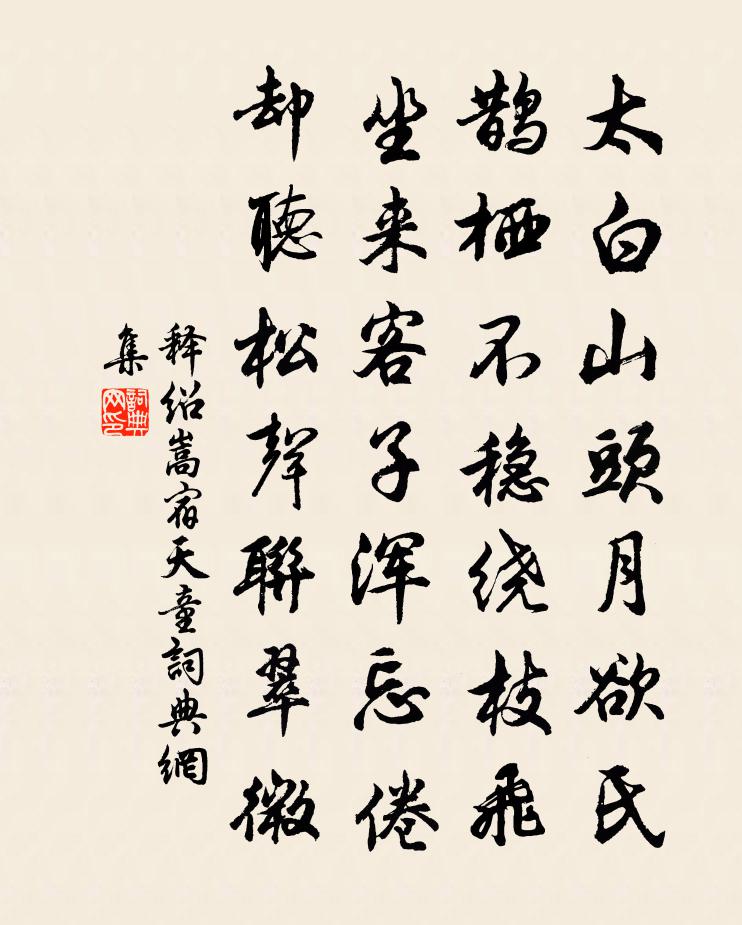 太白山頭月欲氐
鹊栖不稳绕枝飛
坐来客子浑忘倦
却聽松聲聯翠微
释绍嵩宿天童詞典網
集
詞典
网印